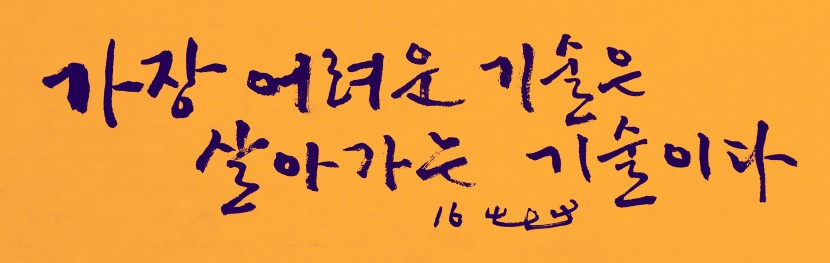 가장 어려운 기술은
살아가는 기술이다
16